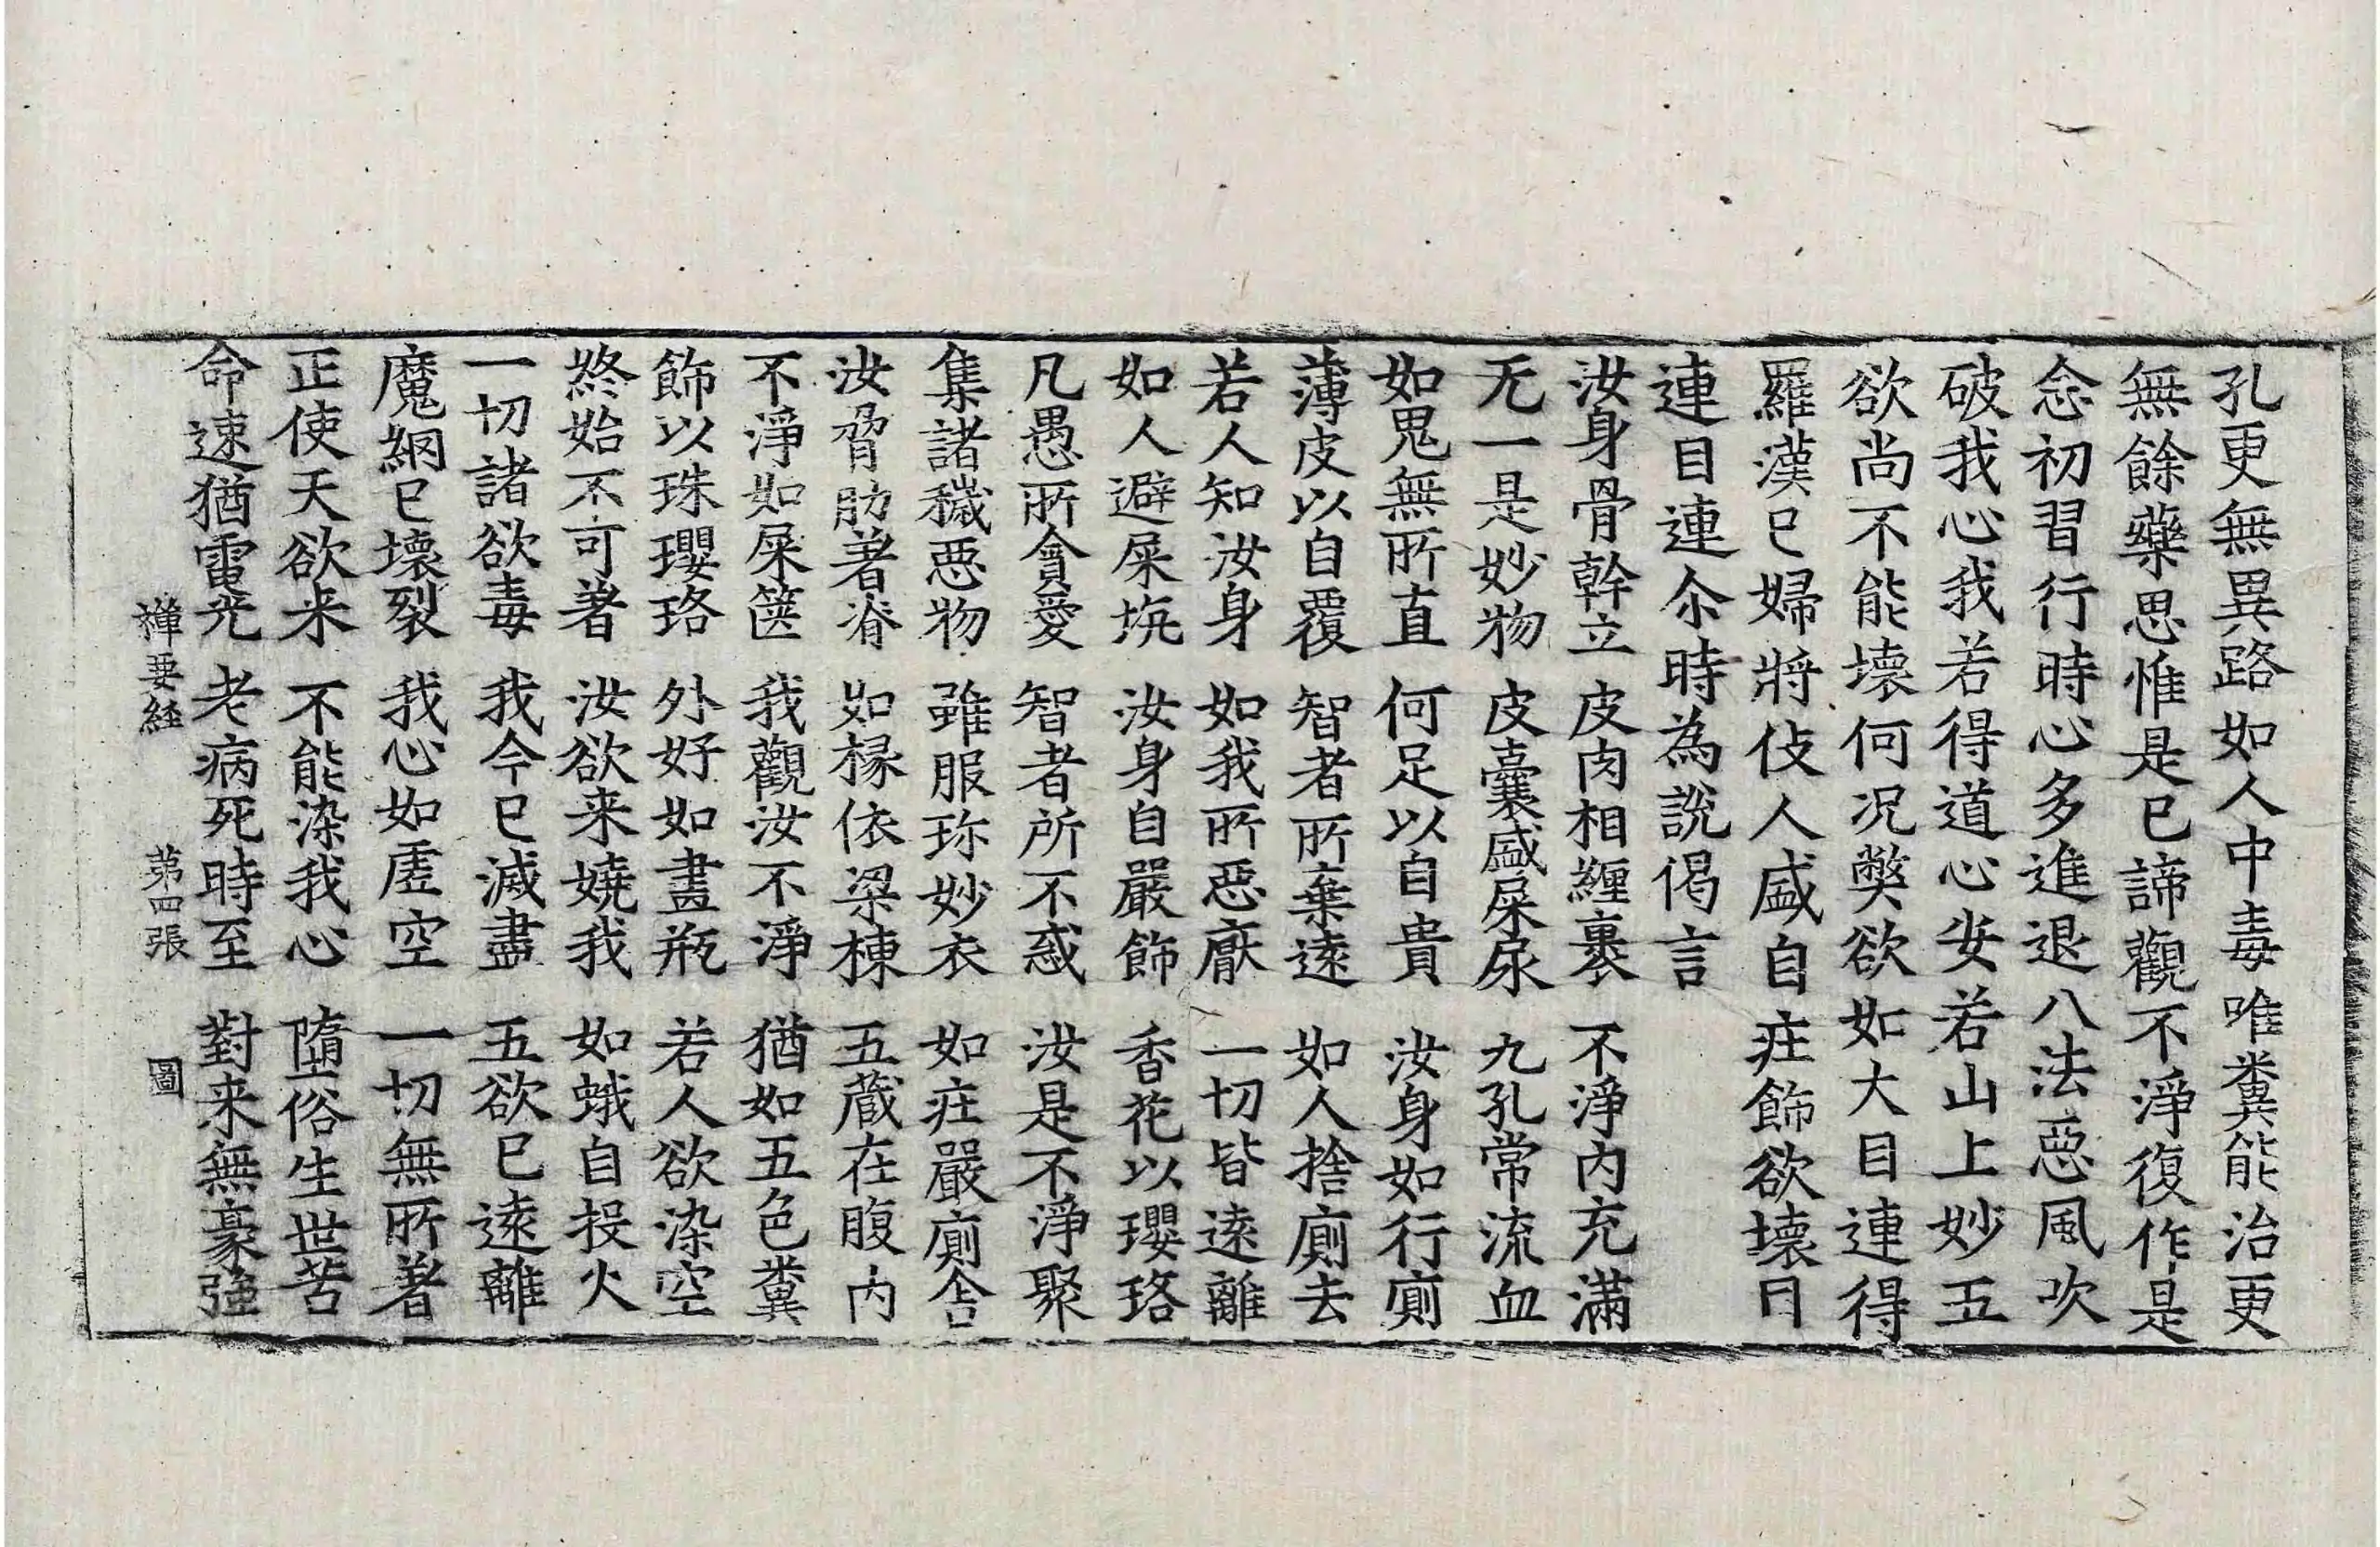 孔更無異路如人中毒唯糞能治更
無餘藥思惟是已諦觀不淨復作是
念初習行時心多進退八法惡風吹
破我心我若得道心安若山上妙五
欲尚不能壞何況弊欲如大目連得
羅漢已婦將伎人盛自莊飾欲壞目
連目連尒時為說偈言
汝身骨幹立　皮肉相纏裹　不淨內充滿
无一是妙物　皮囊盛屎尿　九孔常流血
如鬼無所直　何足以自貴　汝身如行廁
薄皮以自覆　智者所棄遠　如人捨廁去
若人知汝身　如我所惡厭　一切皆遠離
如人避屎坑　汝身自嚴飾　香花以瓔珞
凡愚所貪愛　智者所不惑　汝是不淨聚
集諸穢惡物　雖服珎妙衣　如莊嚴廁舍
汝脅肋著脊　如椽依梁棟　五藏在腹內
不淨如屎篋　我觀汝不淨　猶如五色糞
飾以珠瓔珞　外好如畫瓶　若人欲染空
終始不可著　汝欲来嬈我　如蛾自投火
一切諸欲毒　我今已滅盡　五欲已遠離
魔網已壞裂　我心如虛空　一切無所著
正使天欲来　不能染我心　墮俗生世苦
命速猶電光　老病死時至　對来無豪強
禅要経　第四張　圖